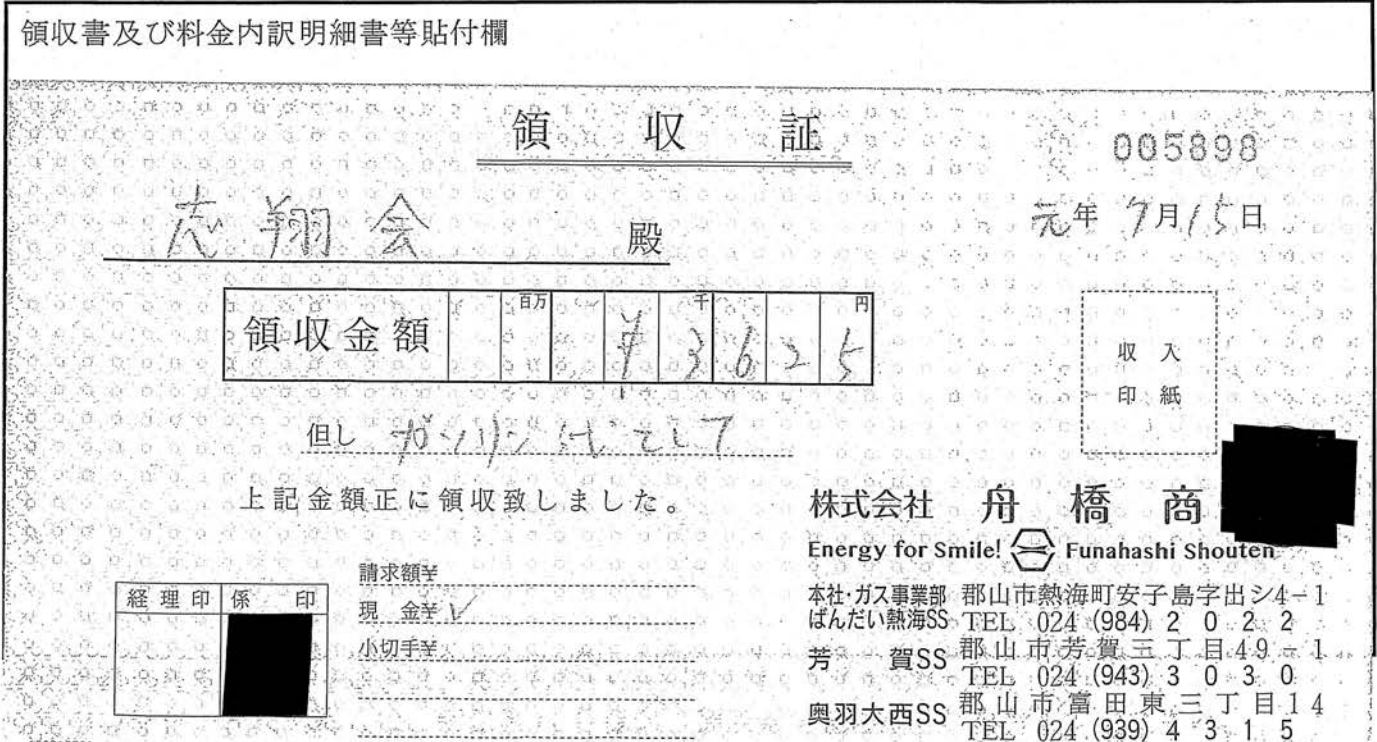 領収書及び料金内訳明細書等貼付欄
領 収 証
005898
志翔会 殿
元年 7月15日
領収金額 百万 千 円
¥3625
収入
印紙
但し ガソリン代として
上記金額正に領収致しました。
株式会社 舟橋商
Energy for Smile! Funahashi Shouten
経理印 係印
請求額¥
現金¥ レ
小切手¥
本社・ガス事業部 郡山市熱海町安子島字出シ4-1
ばんだい熱海SS TEL 024 (984) 2022
芳賀SS 郡山市芳賀三丁目49-1
TEL 024 (943) 3030
奥羽大西SS 郡山市富田東三丁目14
TEL 024 (939) 4315